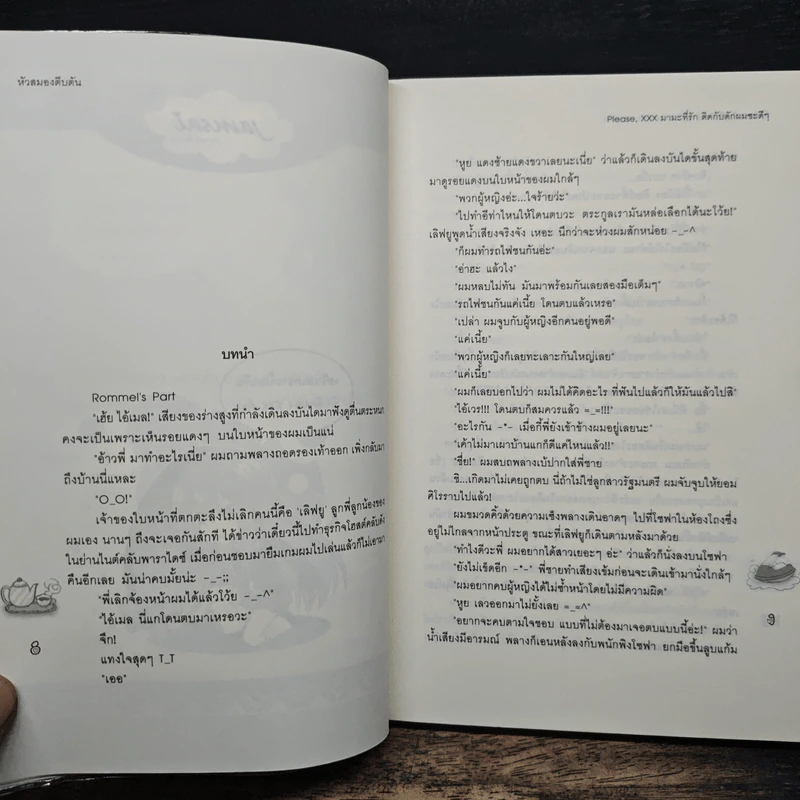 หัวสมองตีบตัน
jamsai
บทนำ
Rommel's Part
"เฮ้ย ไอ้เมล!" เสียงของร่างสูงที่กำลังเดินลงบันไดมาฟังดูตื่นตระหนก
คงจะเป็นเพราะเห็นรอยแดงๆ บนใบหน้าของผมเป็นแน่
"อ้าวพี่ มาทำอะไรเนี่ย" ผมถามพลางถอดรองเท้าออก เพิ่งกลับมา
ถึงบ้านนี่แหละ
"O_O!"
เจ้าของใบหน้าที่ตกตะลึงไม่เลิกคนนี้คือ 'เลิฟยู' ลูกพี่ลูกน้องของ
ผมเอง นานๆ ถึงจะเจอกันสักที ได้ข่าวว่าเดี๋ยวนี้ไปทำธุรกิจโฮสต์คลับดัง
ในย่านไนต์คลับพาราไดซ์ เมื่อก่อนชอบมายืมเกมผมไปเล่นแล้วก็ไม่เอามา
คืนอีกเลย มันน่าคบมั้ยน่ะ -_-;;
"พี่เลิกจ้องหน้าผมได้แล้วโว้ย -_-^"
"ไอ้เมล นี่แกโดนตบมาเหรอวะ"
จึก!
แทงใจสุดๆ T_T
"เออ"
8
Please, XXX มามะที่รัก ติดกับดักผมซะดีๆ
"หูย แดงซ้ายแดงขวาเลยนะเนี่ย" ว่าแล้วก็เดินลงบันไดขั้นสุดท้าย
มาดูรอยแดงบนใบหน้าของผมใกล้ๆ
"พวกผู้หญิงอ่ะ...ใจร้ายว่ะ"
"ไปทำอีท่าไหนให้โดนตบวะ ตระกูลเรามันหล่อเลือกได้นะโว้ย!"
เลิฟยูพูดน้ำเสียงจริงจัง เหอะ นึกว่าจะห่วงผมสักหน่อย -_-^
"ก็ผมทำรถไฟชนกันอ่ะ"
"อ่าฮะ แล้วไง"
"ผมหลบไม่ทัน มันมาพร้อมกันเลยสองมือเต็มๆ"
"รถไฟชนกันแค่เนี้ย โดนตบแล้วเหรอ"
"เปล่า ผมจูบกับผู้หญิงอีกคนอยู่พอดี"
"แค่เนี้ย"
"พวกผู้หญิงก็เลยทะเลาะกันใหญ่เลย"
"แค่เนี้ย"
"ผมก็เลยบอกไปว่า ผมไม่ได้คิดอะไร ที่ฟันไปแล้วก็ให้มันแล้วไปสิ"
"ไอ้เวร!!! โดนตบก็สมควรแล้ว =_=!!!"
"อะไรกัน -*- เมื่อกี้พี่ยังเข้าข้างผมอยู่เลยนะ"
"เค้าไม่มาเผาบ้านแกก็ดีแค่ไหนแล้ว!!"
"ชื่ย!" ผมสบถพลางเบ้ปากใส่พี่ชาย
ชิ...เกิดมาไม่เคยถูกตบ นี่ถ้าไม่ใช่ลูกสาวรัฐมนตรี ผมจับจูบให้ยอม
ศิโรราบไปแล้ว!
ผมขมวดคิ้วด้วยความเซ็งพลางเดินอาดๆ ไปที่โซฟาในห้องโถงซึ่ง
อยู่ไม่ไกลจากหน้าประตู ขณะที่เลิฟยูก็เดินตามหลังมาด้วย
"ทำไงดีวะพี่ ผมอยากได้สาวเยอะๆ อ่ะ" ว่าแล้วก็นั่งลงบนโซฟา
"ยังไม่เข็ดอีก -*-" พี่ชายทำเสียงเข้มก่อนจะเดินเข้ามานั่งใกล้ๆ
"ผมอยากคบผู้หญิงได้ไม่ซ้ำหน้าโดยไม่มีความผิด"
"หูย เลวออกมาไม่ยั้งเลย =_=^"
"อยากจะคบตามใจชอบ แบบที่ไม่ต้องมาเจอตบแบบนี้อ่ะ!" ผมว่า
น้ำเสียงมีอารมณ์ พลางก็เอนหลังลงกับพนักพิงโซฟา ยกมือขึ้นลูบแก้ม
9